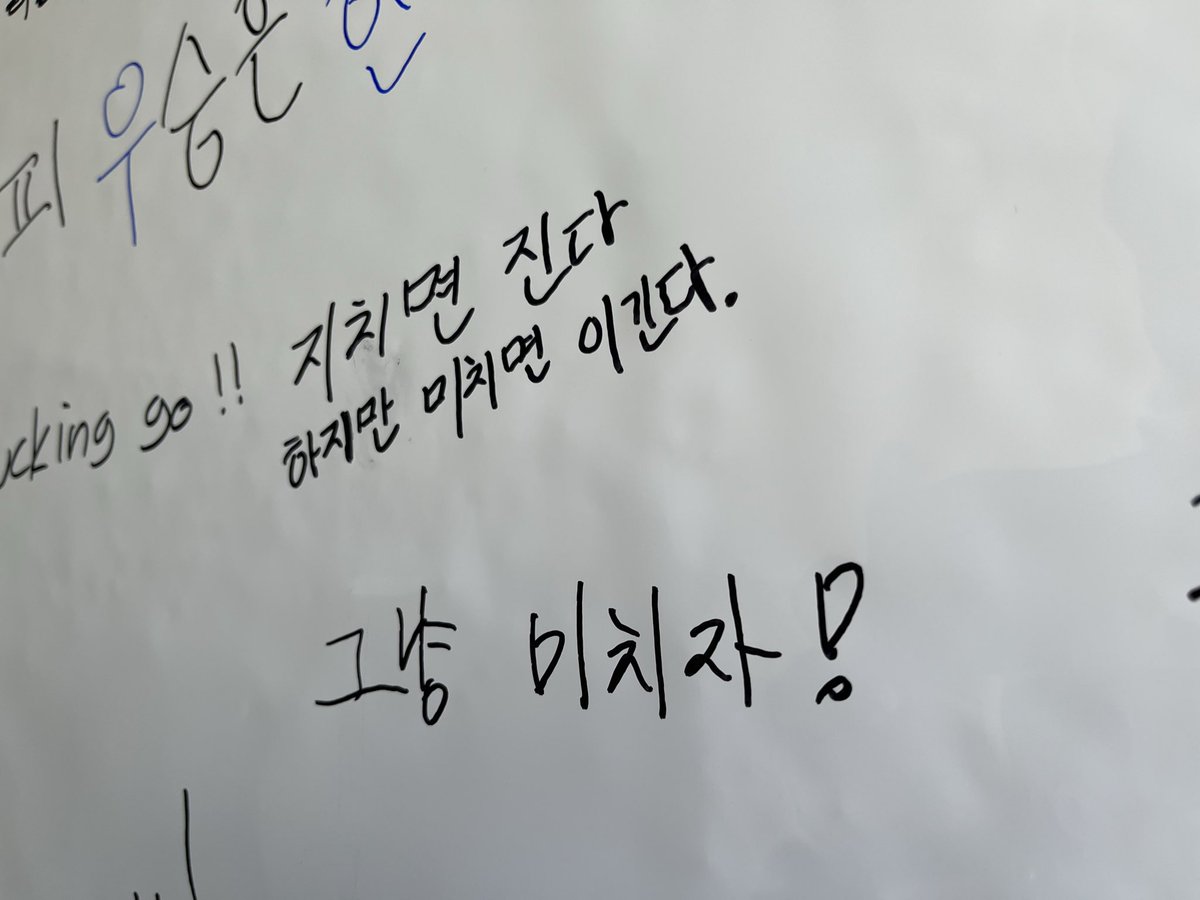 피 우승은
ucking go!! 지치면 진다
하지만 미치면 이긴다.
그냥 미치자!